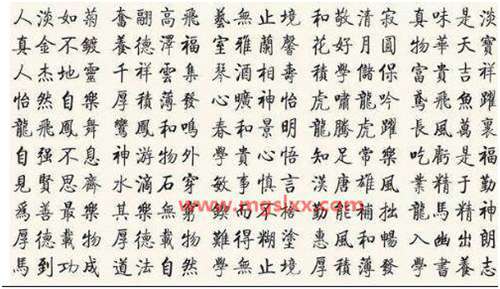 人淡如菊 奮翮高飛 藝無止境 和敬清寂 真味是淡
真金不鍍 養德澤福 室雅蘭馨 花好月圓 物華天寶
人杰地靈 千祥雲集 琴酒相壽 積學儲保 富貴吉祥
怡然自樂 厚積薄發 心曠神怡 虎嘯龍吟 鳶飛魚躍
龍飛鳳舞 鸞鳳和鳴 春和景明 龍騰虎躍 長風萬裏
自强不息 神游物外 學貴心悟 知足常樂 吃虧是福
見賢思齊 水滴石穿 敏事慎言 漢唐雄風 業精於勤
爲善最樂 其樂無窮 鍥而不 勤能補拙 龍馬精神
厚德載物 厚德載物 難得糊塗 惠風和暢 入幽出朗
馬到功成 道法自然 學無止境 厚積薄發 學書養志
www.mgslxx.com